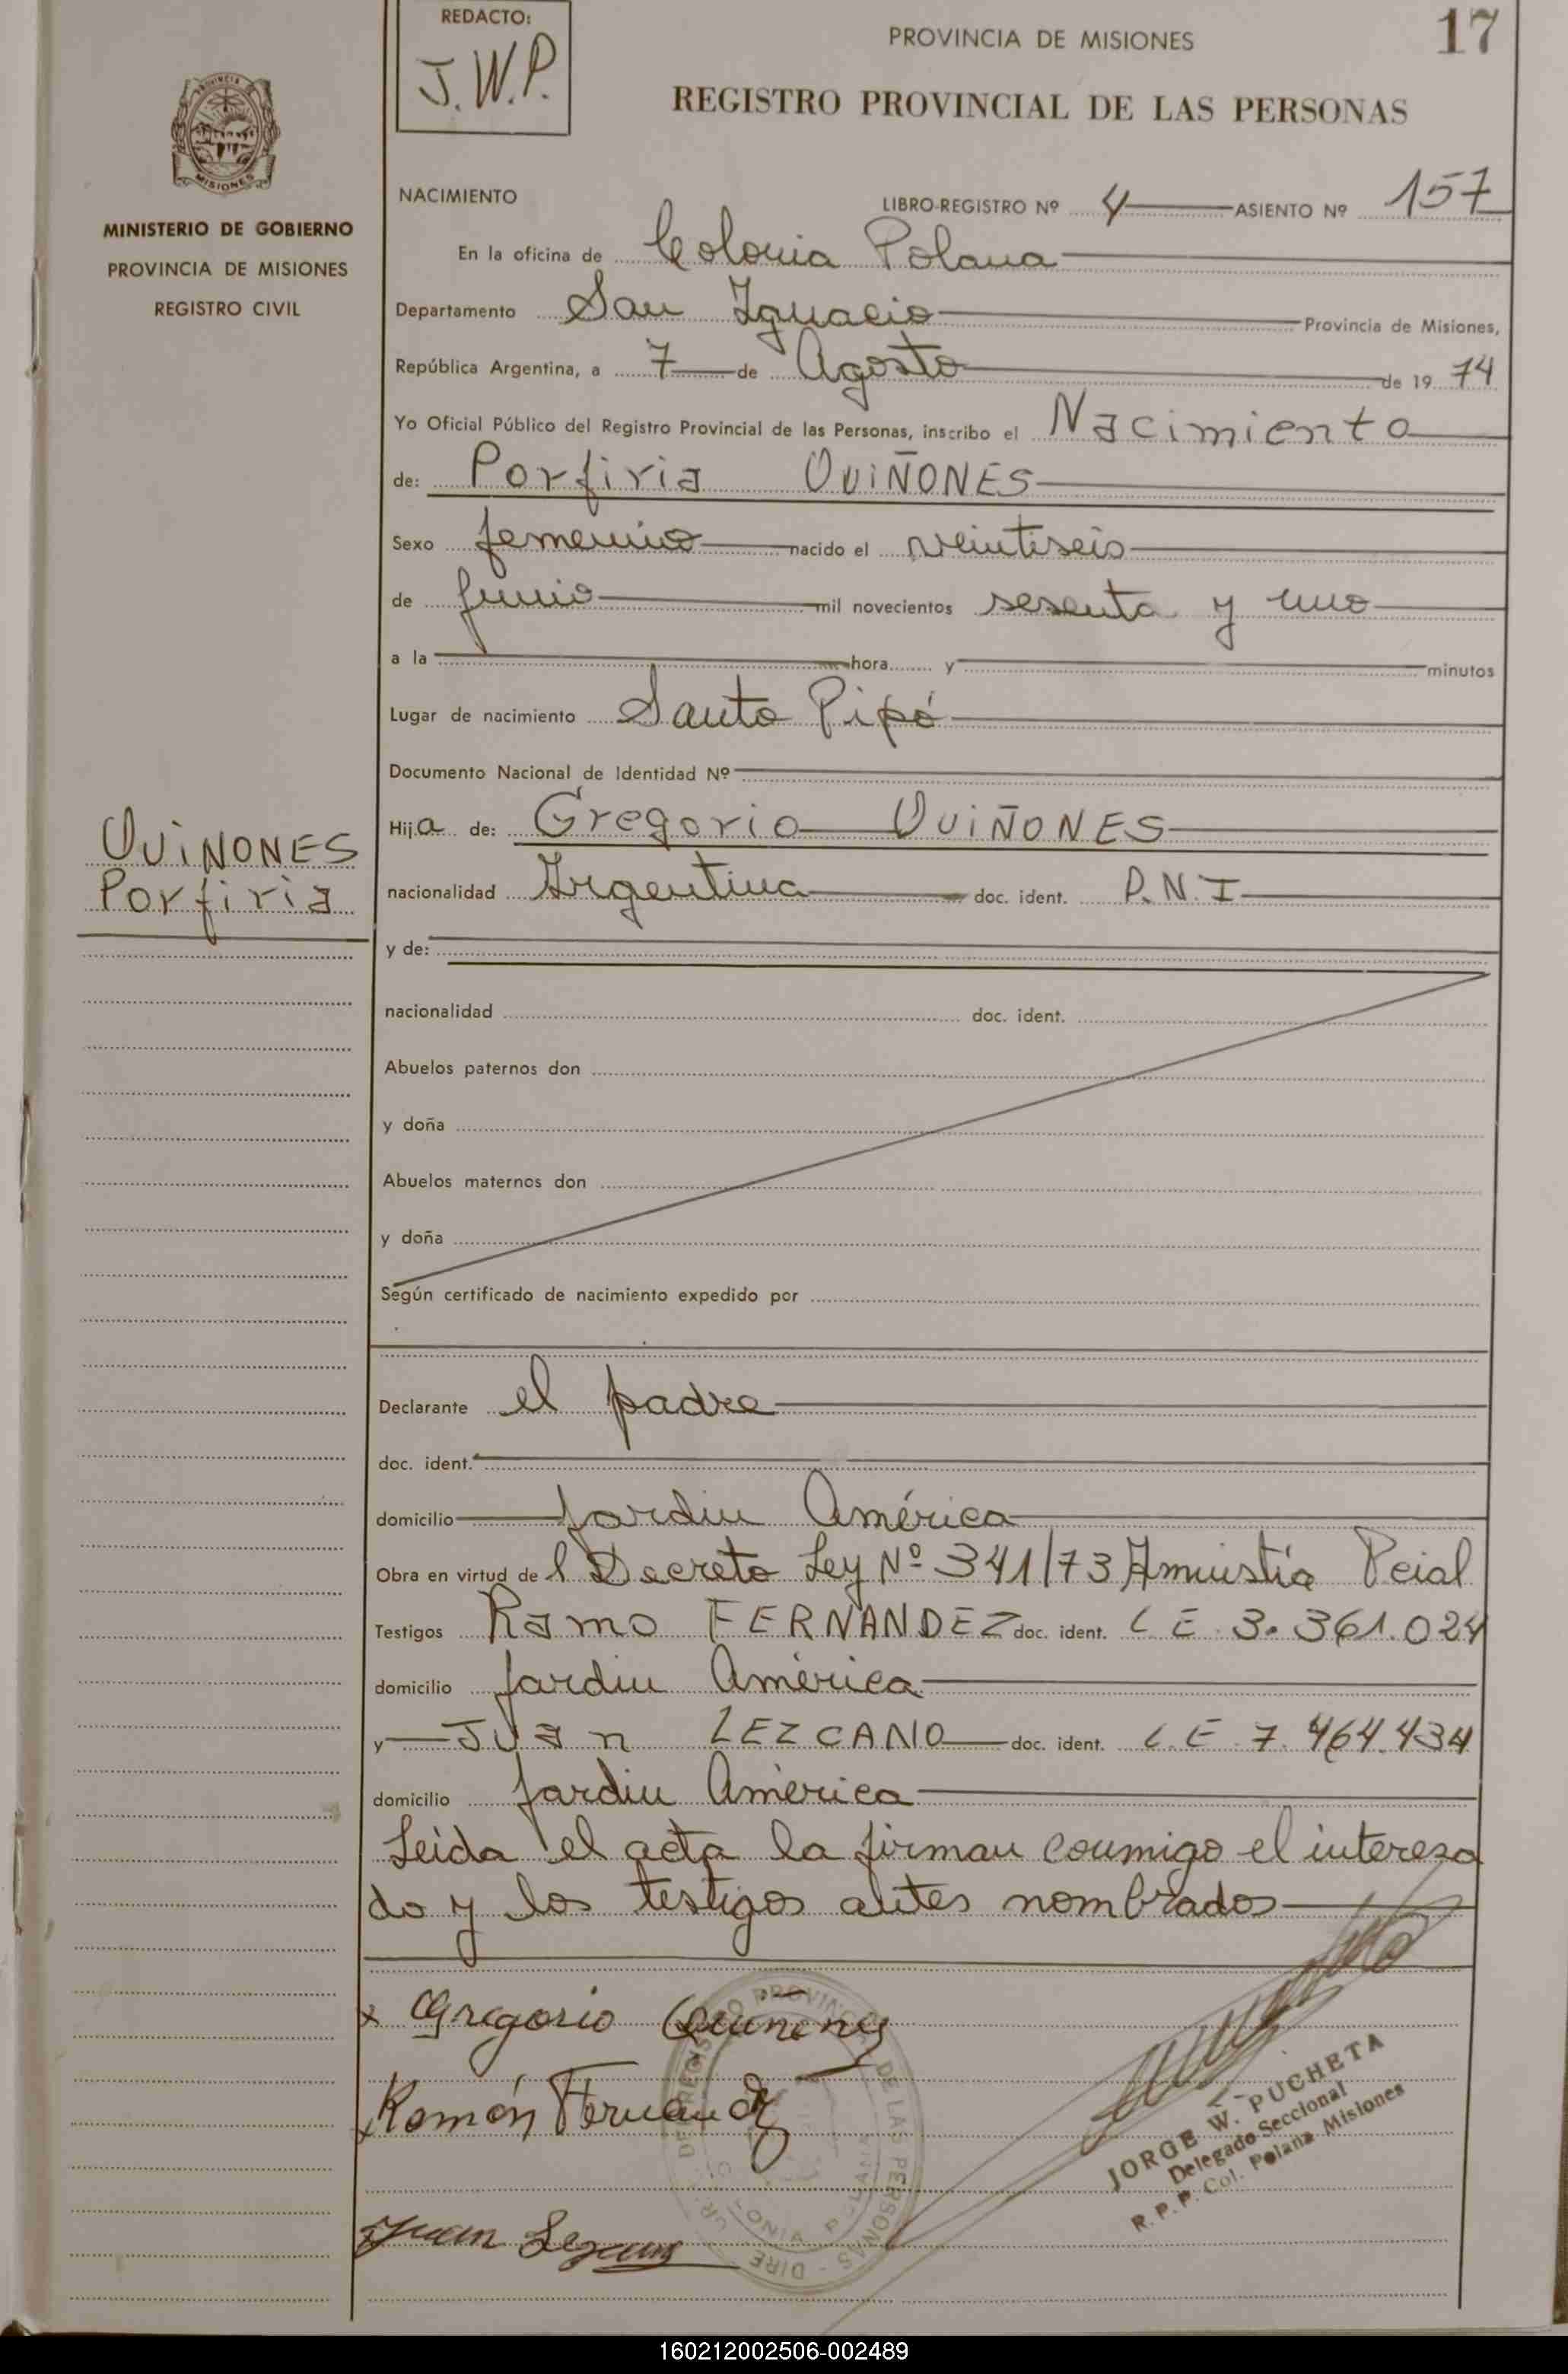 REDACTO:
J.W.P.
PROVINCIA DE MISIONES
17
REGISTRO PROVINCIAL DE LAS PERSONAS
PROVINCIA
MISIONES
MINISTERIO DE GOBIERNO
PROVINCIA DE MISIONES
REGISTRO CIVIL
NACIMIENTO
LIBRO-REGISTRO Nº 4 ASIENTO Nº 157
En la oficina de Colonia Polana
Departamento San Ignacio Provincia de Misiones,
República Argentina, a 7 de Agosto de 1974
Yo Oficial Público del Registro Provincial de las Personas, inscribo el Nacimiento
de: Porfiria QUIÑONES
Sexo femenino nacido el veintiseis
de Junio mil novecientos sesenta y uno
a la hora y minutos
Lugar de nacimiento Santo Pipó
Documento Nacional de Identidad Nº
QUIÑONES
Porfiria
Hija de: Gregorio QUIÑONES
nacionalidad Argentina doc. ident. D.N.I
y de:
nacionalidad doc. ident.
Abuelos paternos don
y doña
Abuelos maternos don
y doña
Según certificado de nacimiento expedido por
Declarante el padre
doc. ident.
domicilio Jardin América
Obra en virtud del Decreto Ley Nº 341/73 Amnistía Pcial
Testigos Ramo FERNANDEZ doc. ident. L E 3.361.024
domicilio Jardin América
y Juan LEZCANO doc. ident. L.E 7.464.434
domicilio Jardin América
Leida el acta la firman conmigo el interesa
do y los testigos antes nombrados
x Gregorio Quiñones
Ramón Fernandez
Juan Lezcano
JORGE W. PUCHETA
Delegado Seccional
R. P. P. Col. Polana Misiones
160212002506-002489